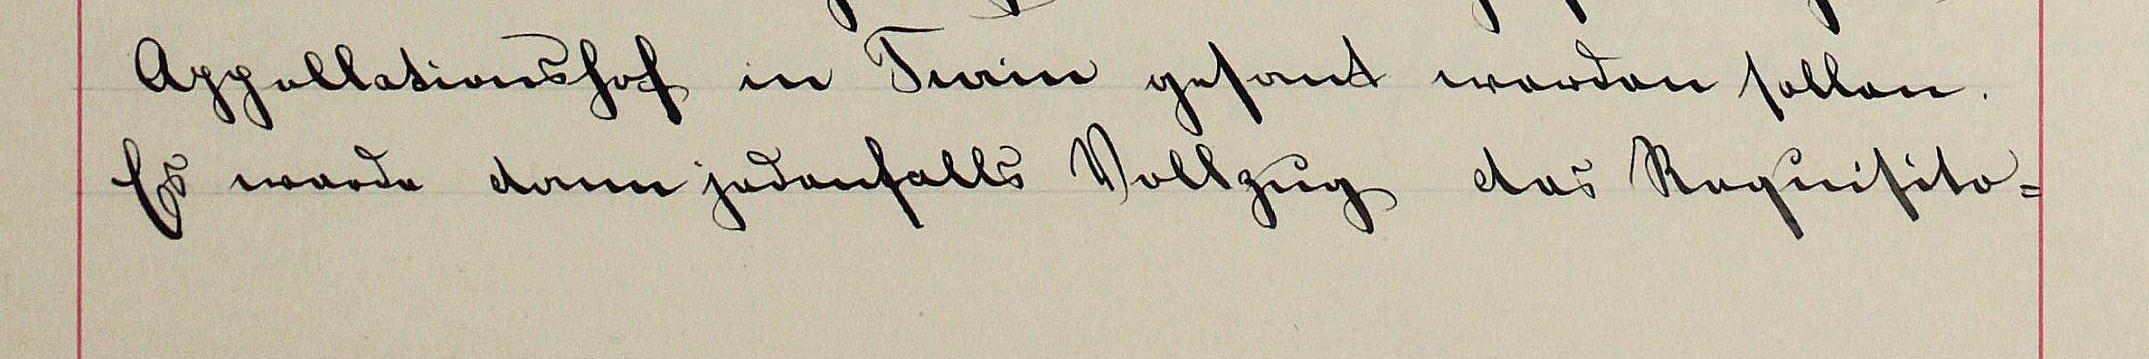 Appellationshof in Turin gesant werden sollen.
Es werde dann jedenfalls Vollzug des Requisito-